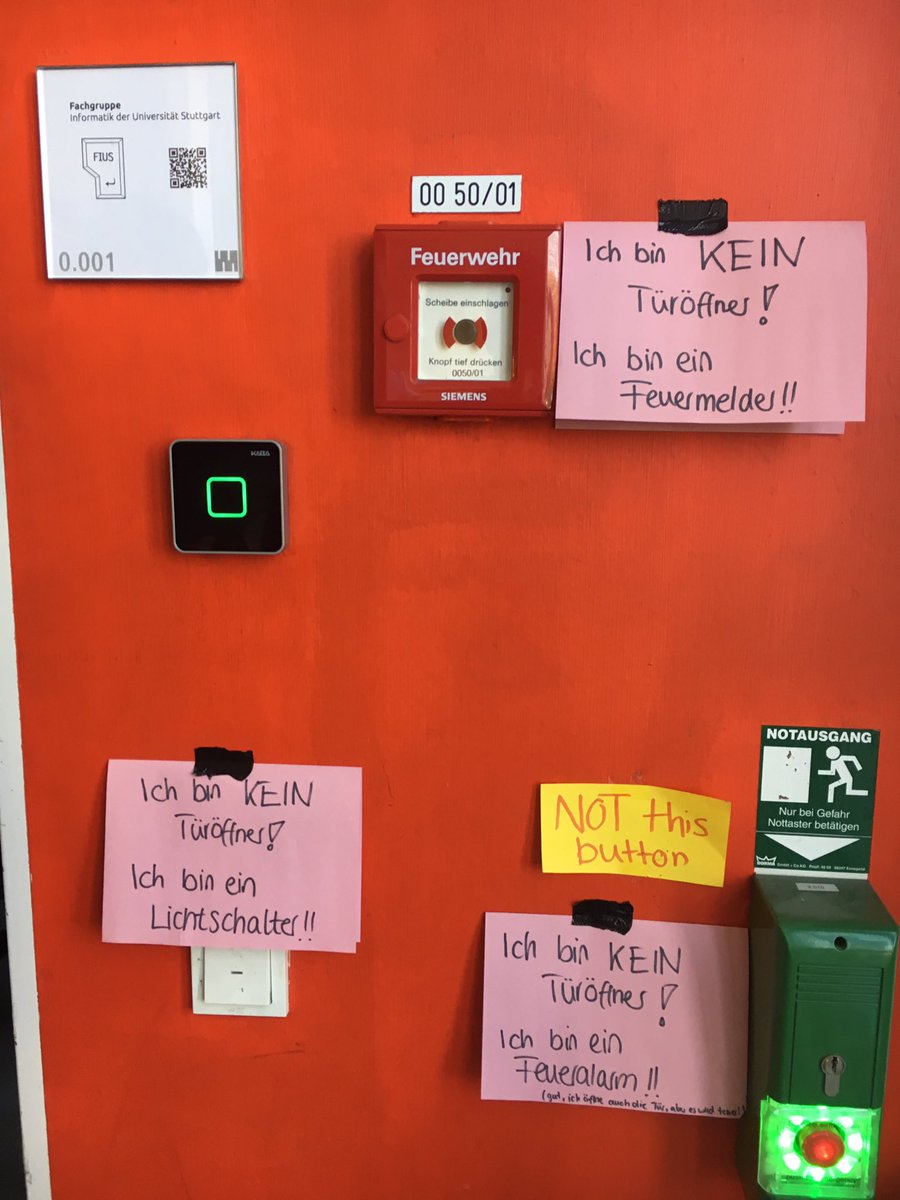 Fachgruppe
Informatik der Universität Stuttgart
FIUS
0.001
00 50/01
Feuerwehr
Scheibe einschlagen
Knopf tief drücken
0050/01
SIEMENS
Ich bin KEIN
Türöffner!
Ich bin ein
Feuermelder!!
KABA
Ich bin KEIN
Türöffner!
Ich bin ein
Lichtschalter!!
NOT this
button
NOTAUSGANG
Nur bei Gefahr
Nottaster betätigen
DORMA GmbH + Co KG
Ich bin KEIN
Türöffner!
Ich bin ein
Feueralarm!!
(gut, ich öffne auch die Tür, aber es wird teuer!)